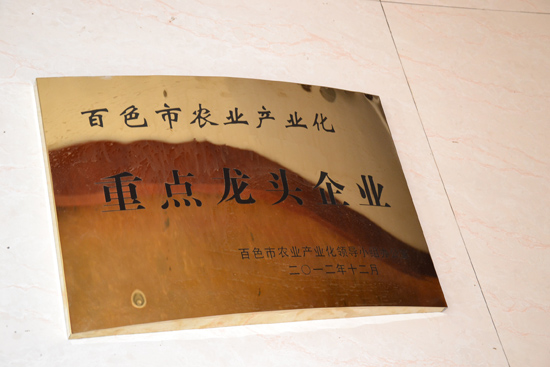 百色市农业产业化
重点龙头企业
百色市农业产业化领导小
二〇一二年十二月